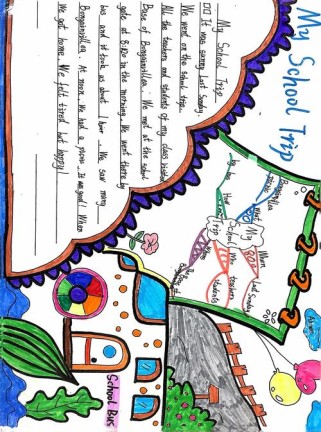 My School Trip
My School Trip
It was sunny Last Sunday.
We went on the school trip.
All the teachers and students of my class visited
Base of Bougainvillea. We met at the school
gate at 8:00 in the morning. We went there by
bus and it took us about 1 hour. We saw many
Bougainvillea. At noon. We had a picnic. It was good. When
We got home. We felt tired but happy!
My
School
Trip
What
When
Last Sunday
Who
teachers
students
Where
How
by bus
Bougainvillea
picnic
School Bus